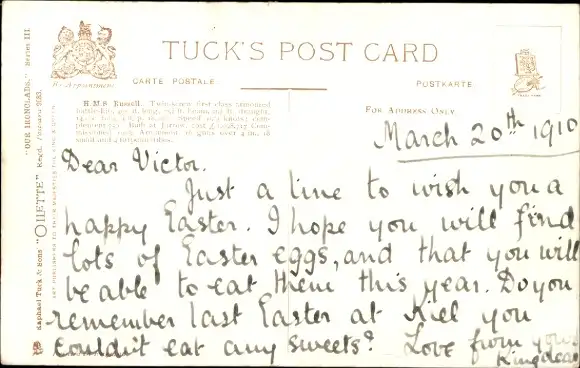 TUCK'S POST CARD
By Appointment
CARTE POSTALE
POSTKARTE
"OUR IRONCLADS." Series III.
Raphael Tuck & Sons' "OILETTE" Regd.
H.M.S. Russell. Twin-screw first-class armoured
FOR ADDRESS ONLY
March 20th 1910
Dear Victor.
Just a line to wish you a
happy Easter. I hope you will find
lots of Easter eggs, and that you will
be able to eat them this year. Do you
remember last Easter at Kiel you
couldn't eat any sweets? Love from your